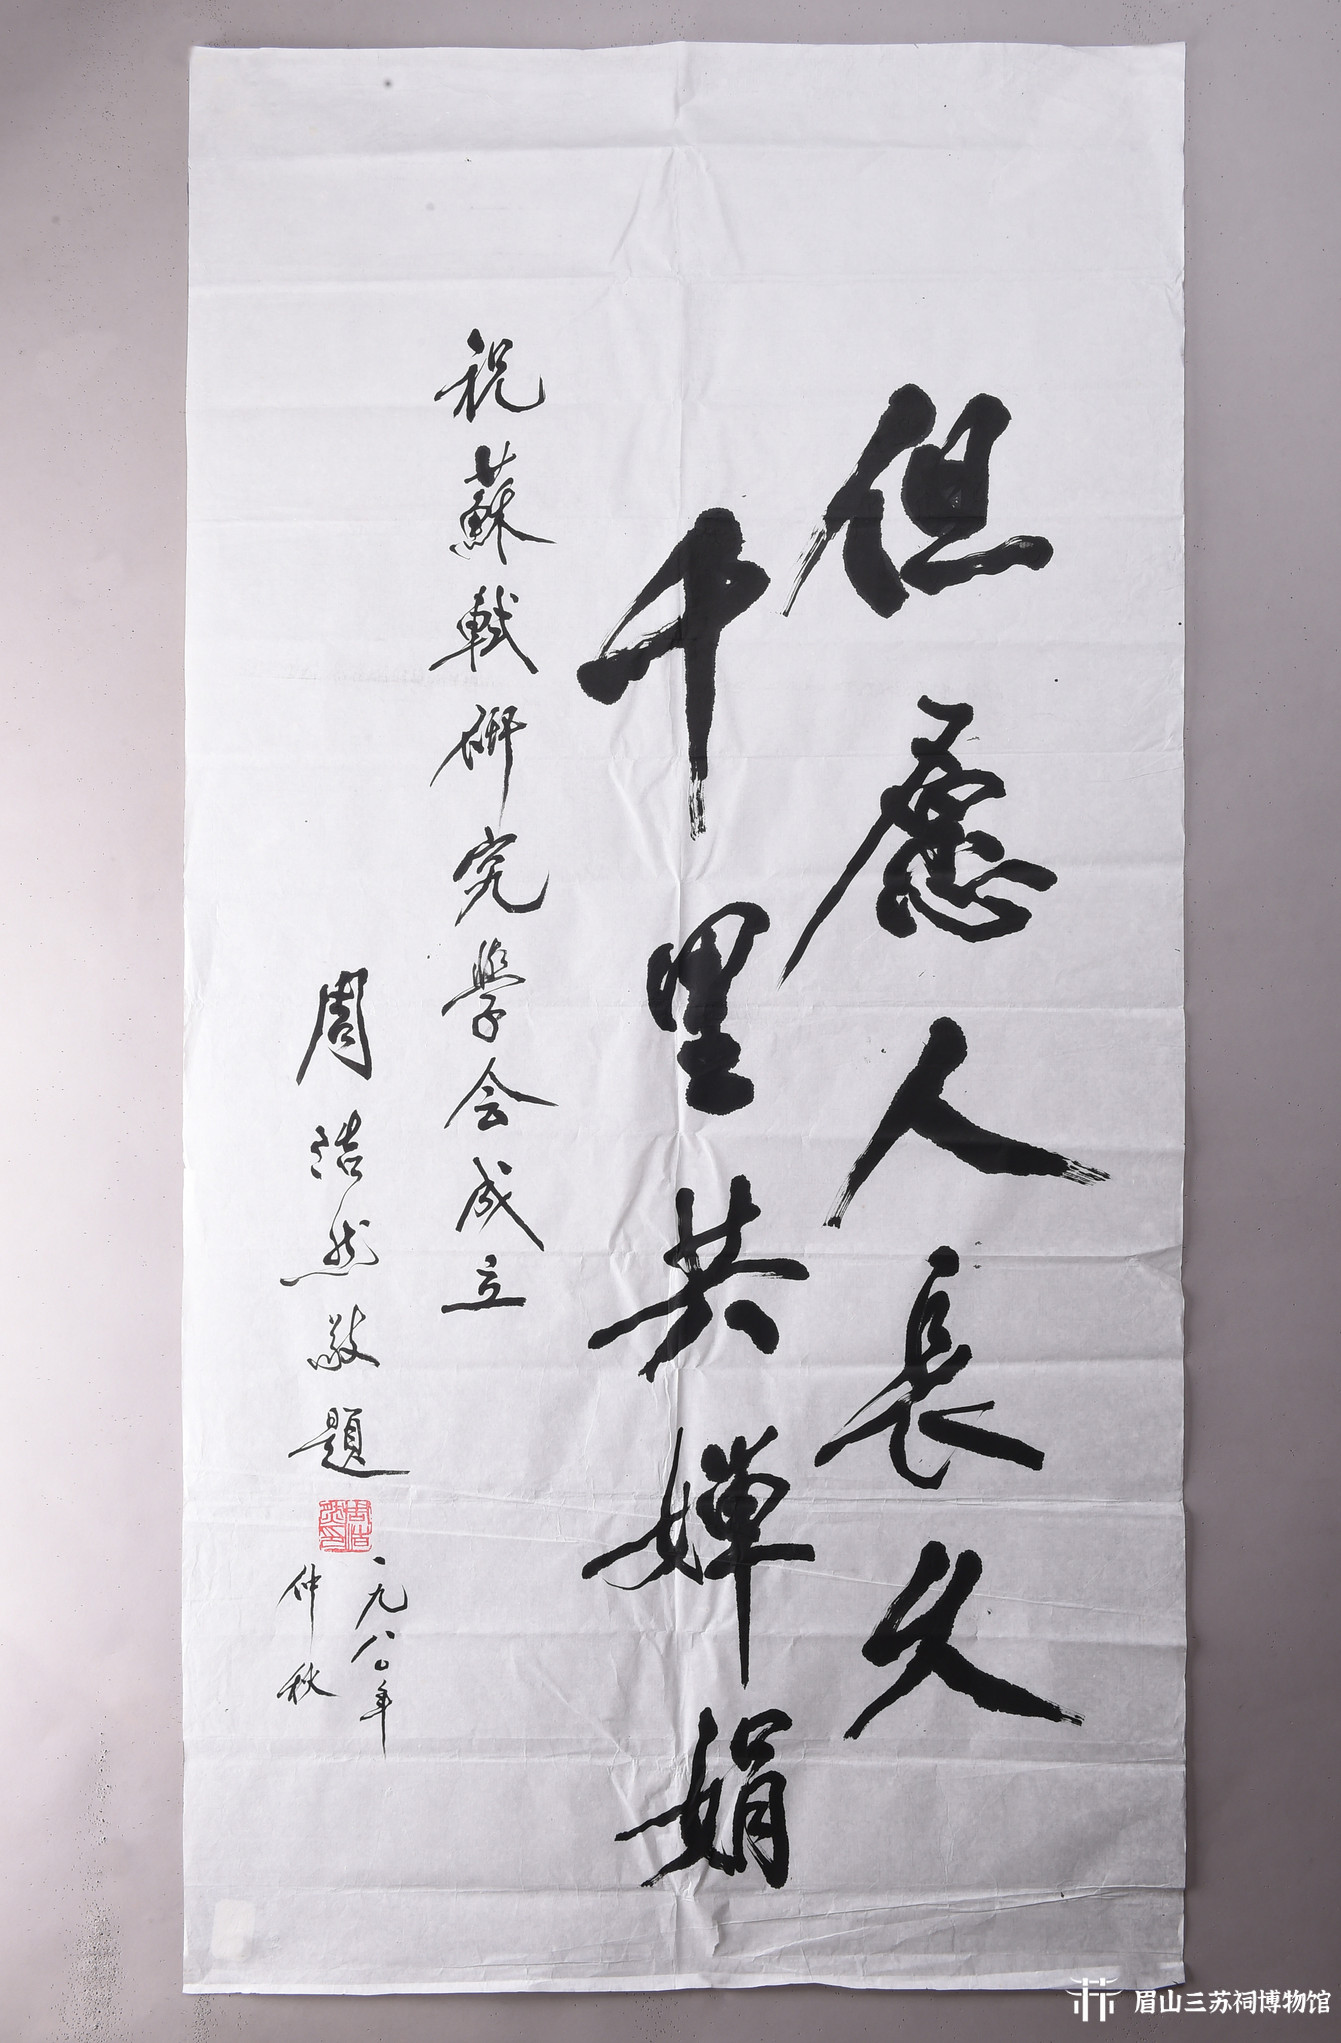 但愿人長久
千里共嬋娟
祝蘇軾研究學会成立
周浩然敬題
周浩然印
一九八〇年
仲秋
眉山三苏祠博物馆